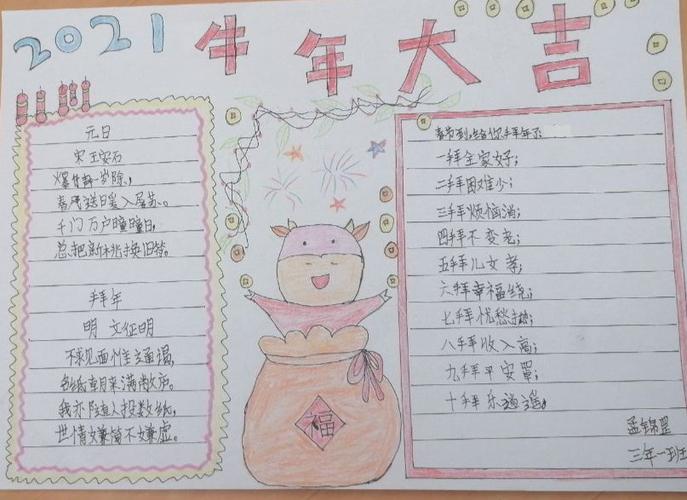 2021 牛年大吉
元日
宋 王安石
爆竹声岁除，
春风送暖入屠苏。
千门万户曈曈日，
总把新桃换旧符。
拜年
明 文征明
不求见面惟通谒，
名纸朝来满敝庐。
我亦随人投数纸，
世情嫌简不嫌虚。
福
春节到，给你拜年了
一拜全家好；
二拜困难少；
三拜烦恼消；
四拜不变老；
五拜儿女孝；
六拜幸福绕；
七拜忧愁抛；
八拜收入高；
九拜平安罩；
十拜乐逍遥。
孟锦罡
三年一班